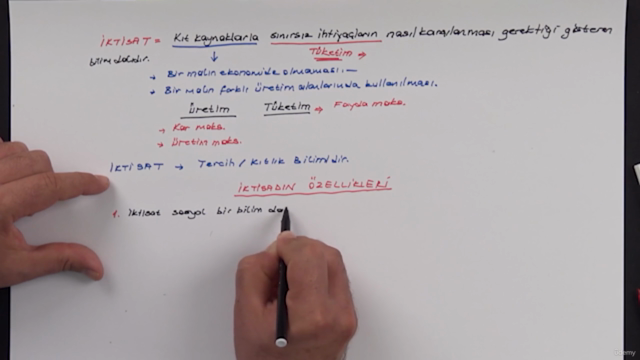 İKTİSAT = Kıt kaynaklarla sınırsız ihtiyaçların nasıl karşılanması gerektiği gösteren
bilim dalıdır.
Tüketim →
→ Bir malın ekonomide olmaması. —
→ Bir malın farklı üretim alanlarında kullanılması.
Üretim Tüketim → Fayda maks.
→ Kar maks.
→ Üretim maks.
İKTİSAT → Tercih / Kıtlık Bilimidir.
İKTİSADIN ÖZELLİKLERİ
1. İktisat sosyal bir bilim
udemy